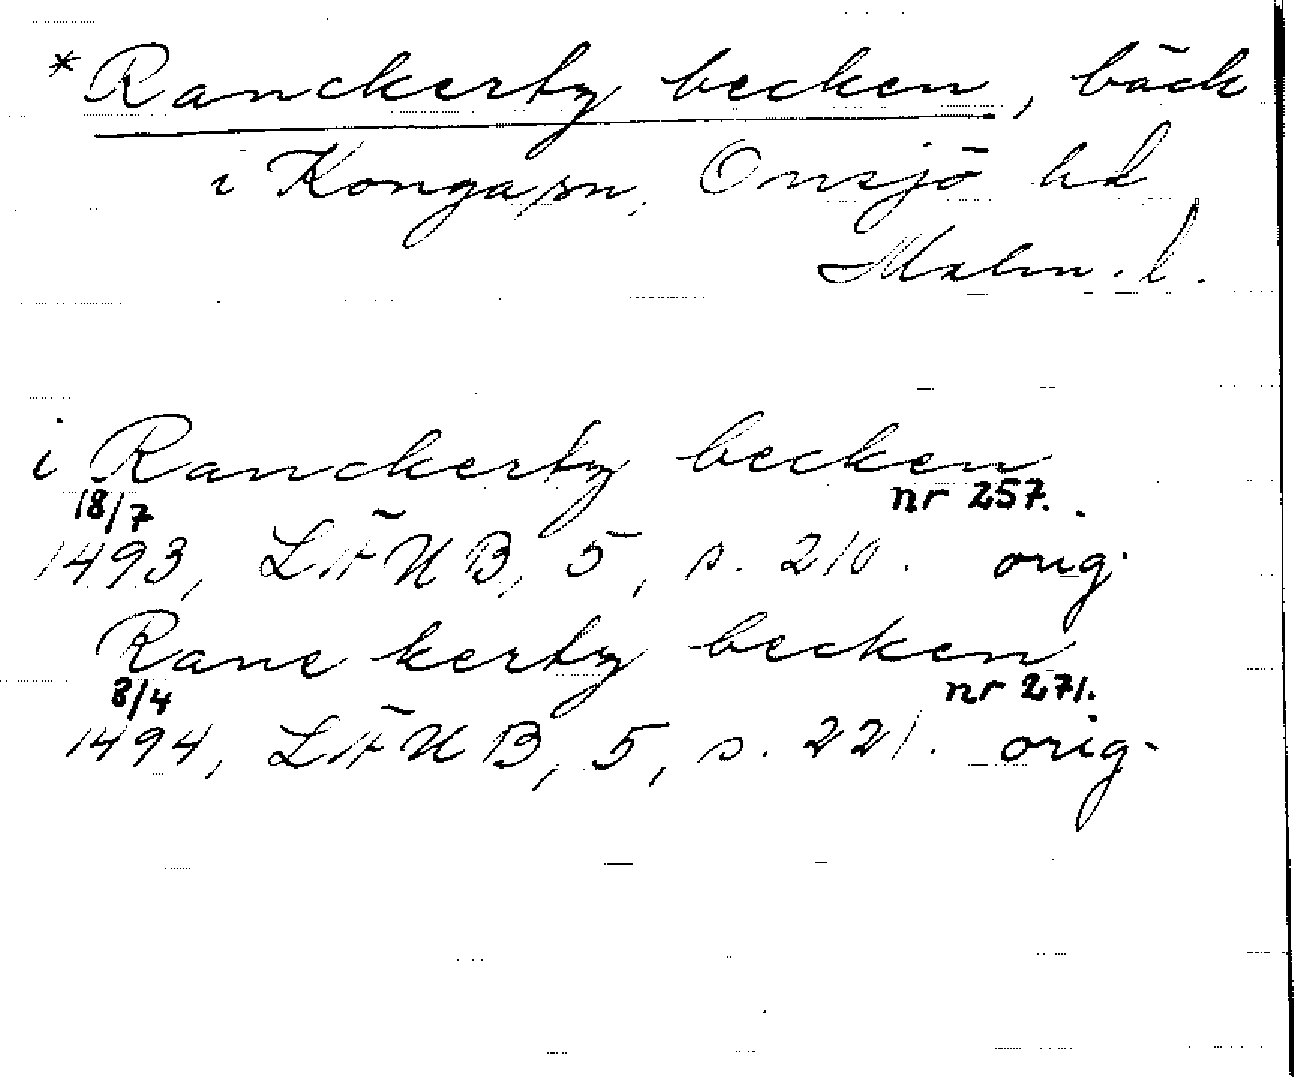 * Ranckerty becken, bäck
i Konga sn, Onsjö hd
Malm. l.
i Ranckerty becken
18/7 nr 257.
1493, LÄUB, 5, s. 210. orig.
Rane kerty becken
8/4 nr 271.
1494, LÄUB, 5, s. 221. orig.